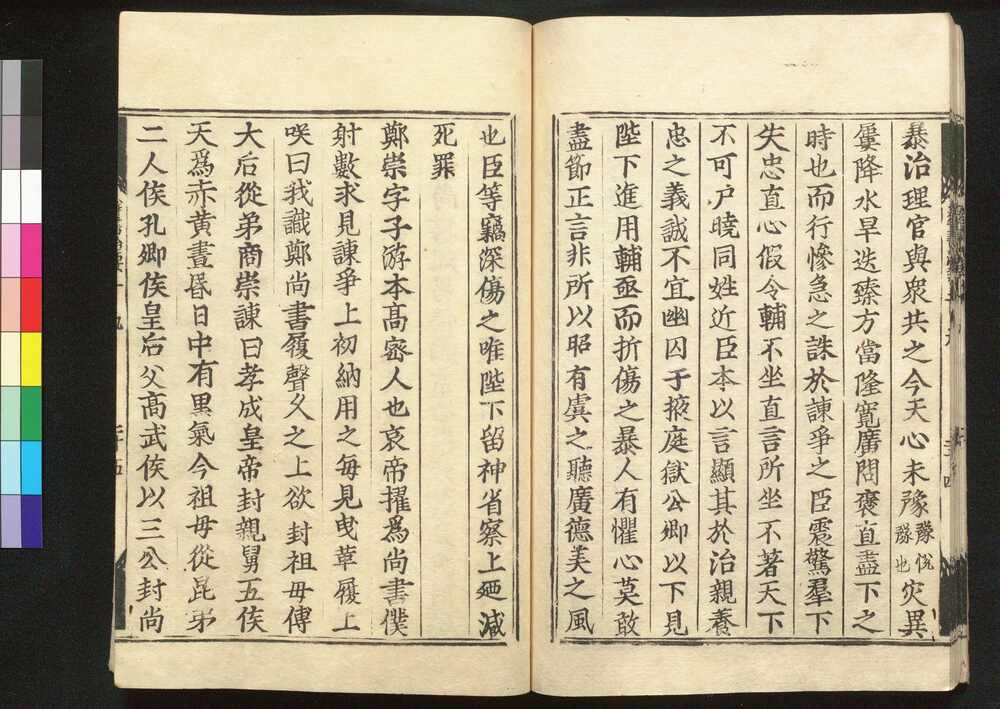 暴治理官與衆共之今天心未豫豫悅豫也灾異
屢降水旱迭臻方當隆寬廣問襃直盡下之
時也而行慘急之誅於諫爭之臣震驚羣下
失忠直心假令輔不坐直言所坐不著天下
不可戶曉同姓近臣本以言顯其於治親養
忠之義誠不宜幽囚于掖庭獄公卿以下見
陛下進用輔亟而折傷之暴人有懼心莫敢
盡節正言非所以昭有虞之聽廣德美之風
也臣等竊深傷之唯陛下留神省察上廼減
死罪
鄭崇字子游本髙密人也哀帝擢爲尚書僕
射數求見諫爭上初納用之每見曳革履上
咲曰我識鄭尚書履聲久之上欲封祖母傅
大后從弟商崇諫曰孝成皇帝封親舅五侯
天爲赤黄晝昬日中有黒氣今祖母從昆弟
二人侯孔鄉侯皇后父髙武侯以三公封尚